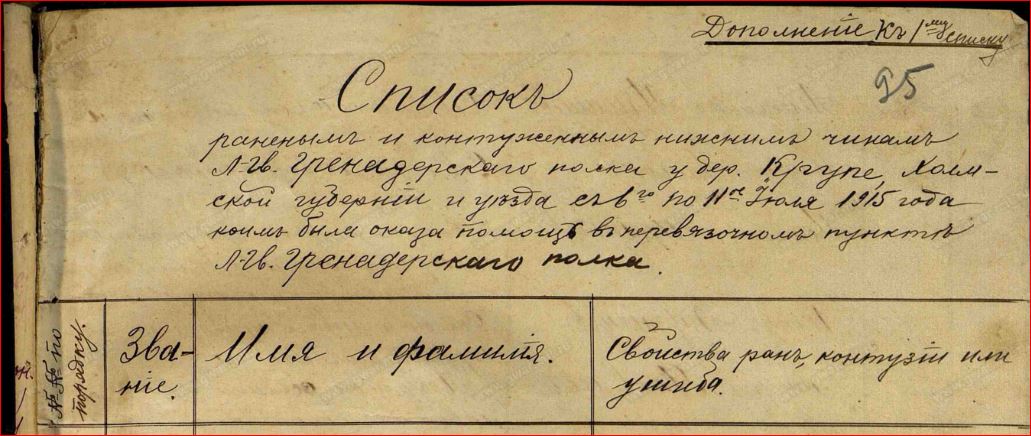 Дополненіе къ 1му списку
95
Списокъ
раненымъ и контуженнымъ нижнимъ чинамъ
Л-Гв. Гренадерскаго полка у дер. Крупе, Холм-
ской губерніи и уѣзда съ 6го по 11ое Іюля 1915 года
коимъ была оказа помощь въ перевязочномъ пунктѣ
Л-Гв. Гренадерскаго полка.
№№ по порядку.
Зва-
ніе.
Имя и фамилія.
Свойства ранъ, контузіи или
ушиба.